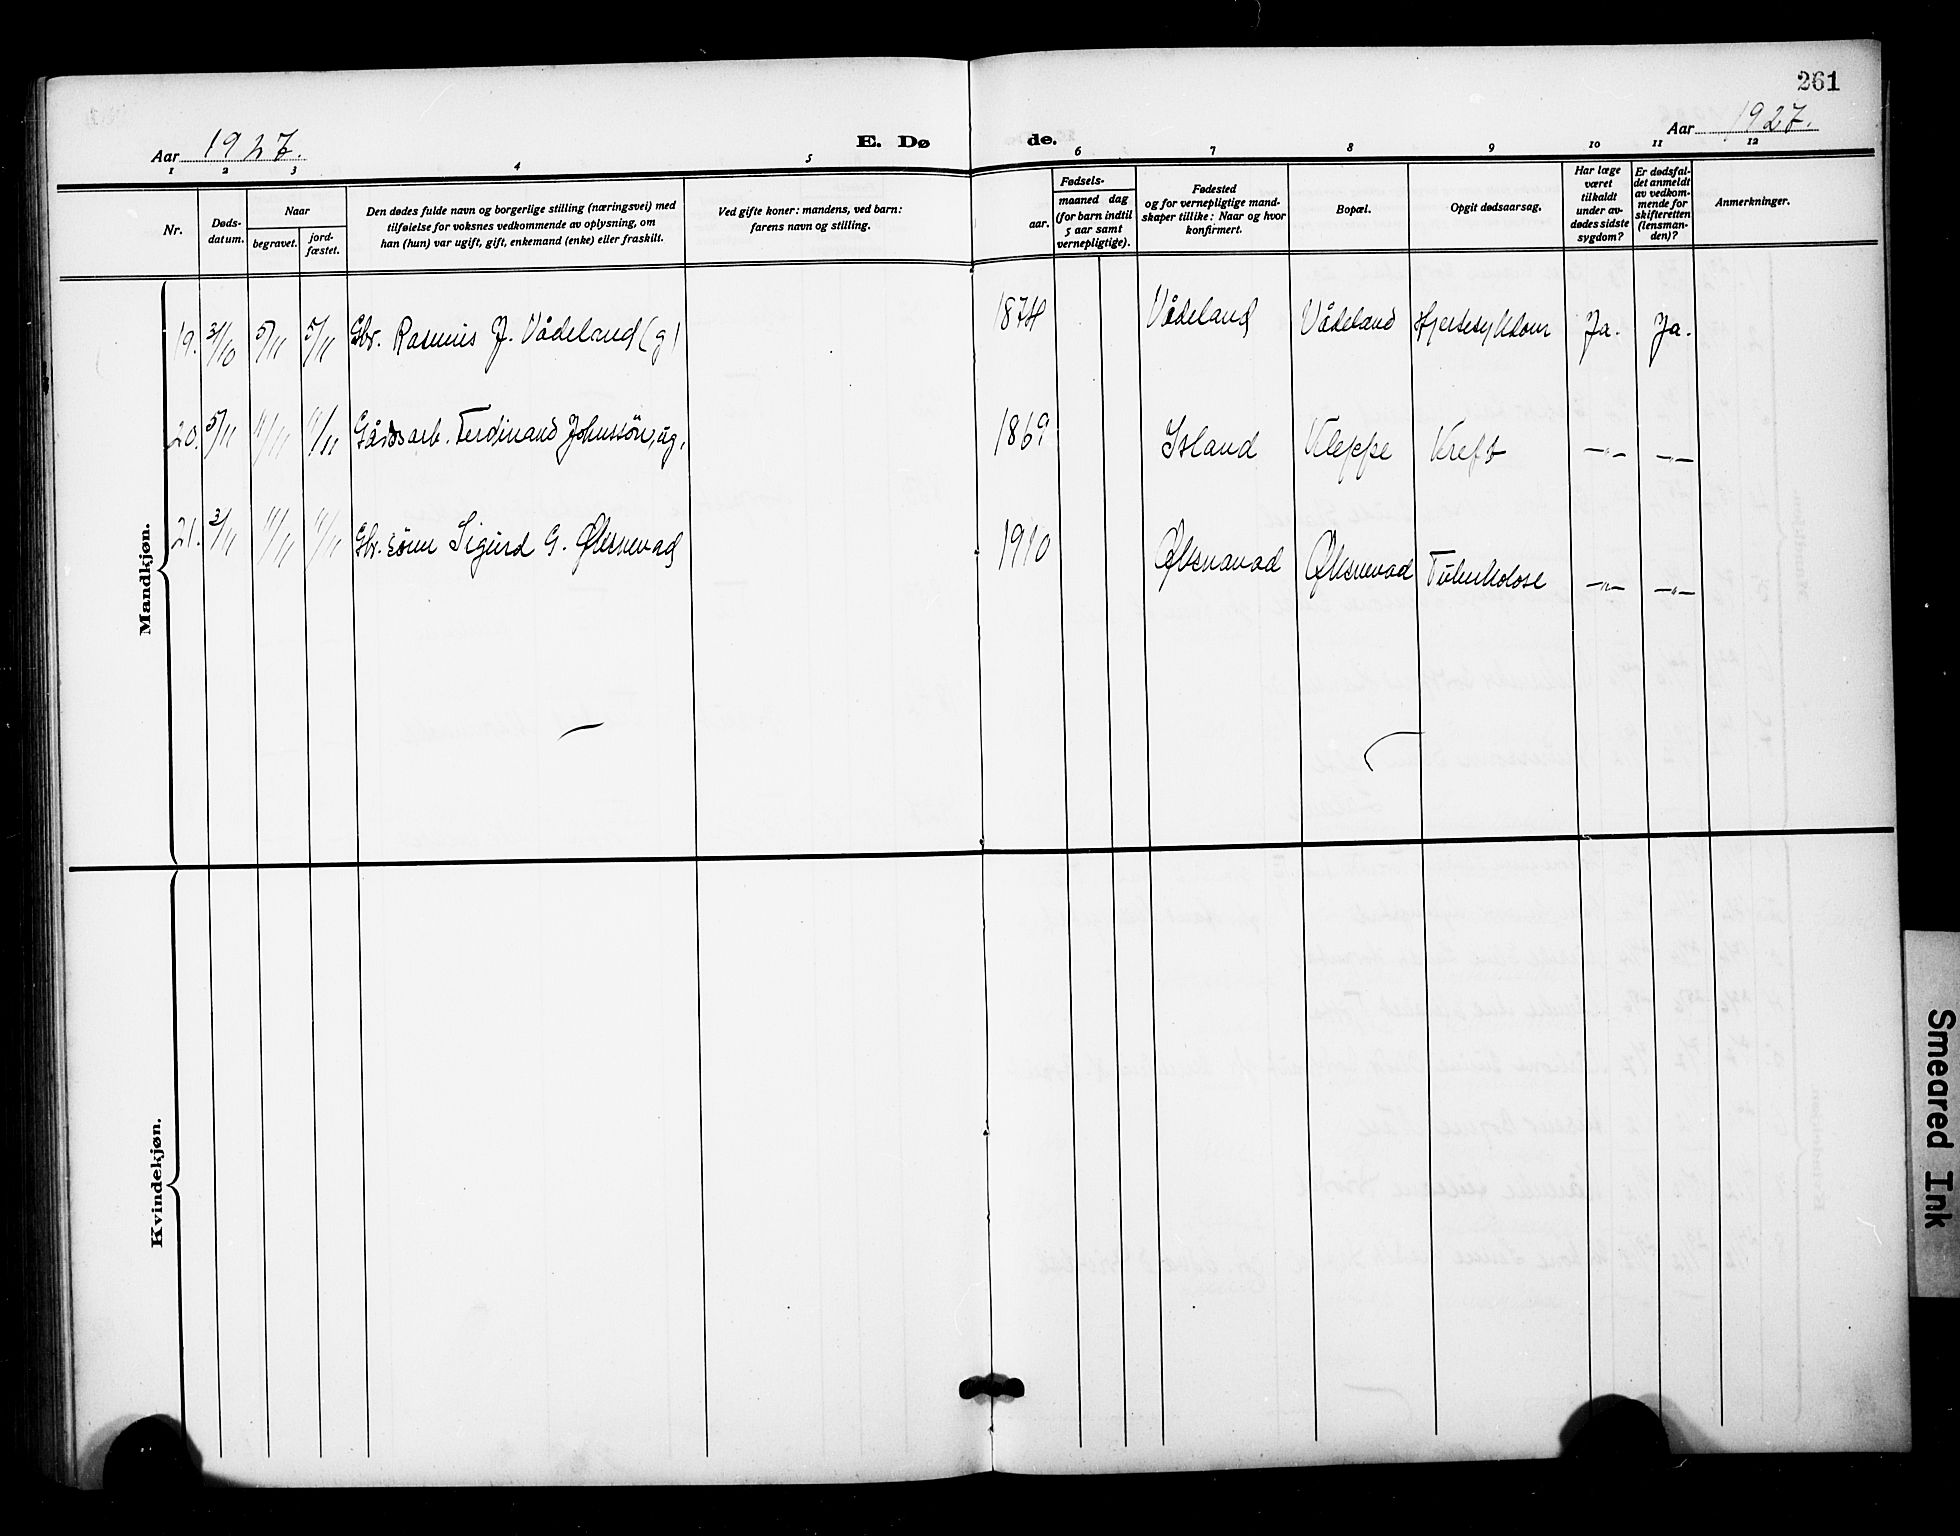 261
Aar 1927.
E. Dø
de.
Aar 1927.
1 2 3 4 5 6 7 8 9 10 11 12
Nr.
Døds-
datum.
Naar
begravet.
jord-
fæstet.
Den dødes fulde navn og borgerlige stilling (næringsvei) med
tilføielse for voksnes vedkommende av oplysning, om
han (hun) var ugift, gift, enkemand (enke) eller fraskilt.
Ved gifte koner: mandens, ved barn:
farens navn og stilling.
Fødsels-
aar.
maaned dag
(for barn indtil
5 aar samt
vernepligtige).
Fødested
og for vernepligtige mand-
skaper tillike: Naar og hvor
konfirmert.
Bopæl.
Opgit dødsaarsag.
Har læge
været
tilkaldt
under av-
dødes sidste
sygdom?
Er dødsfal-
det anmeldt
av vedkom-
mende for
skifteretten
(lensman-
den)?
Anmerkninger.
Mandkjøn.
19. 31/10 5/11 5/11 Gbr. Rasmus J. Vådeland (g) 1874 Vådeland Vådeland Hjertesykdom Ja. Ja.
20. 5/11 11/11 11/11 Gårdsarb. Ferdinand Johnssön, ug. 1869 Island Kleppe Kreft —"— —"—
21. 3/11 11/11 11/11 Gbr. sønn Sigurd G. Øksnevad 1910 Øksnavad Øksnevad Tuberkolose —"— —"—
Kvindekjøn.
Smeared Ink